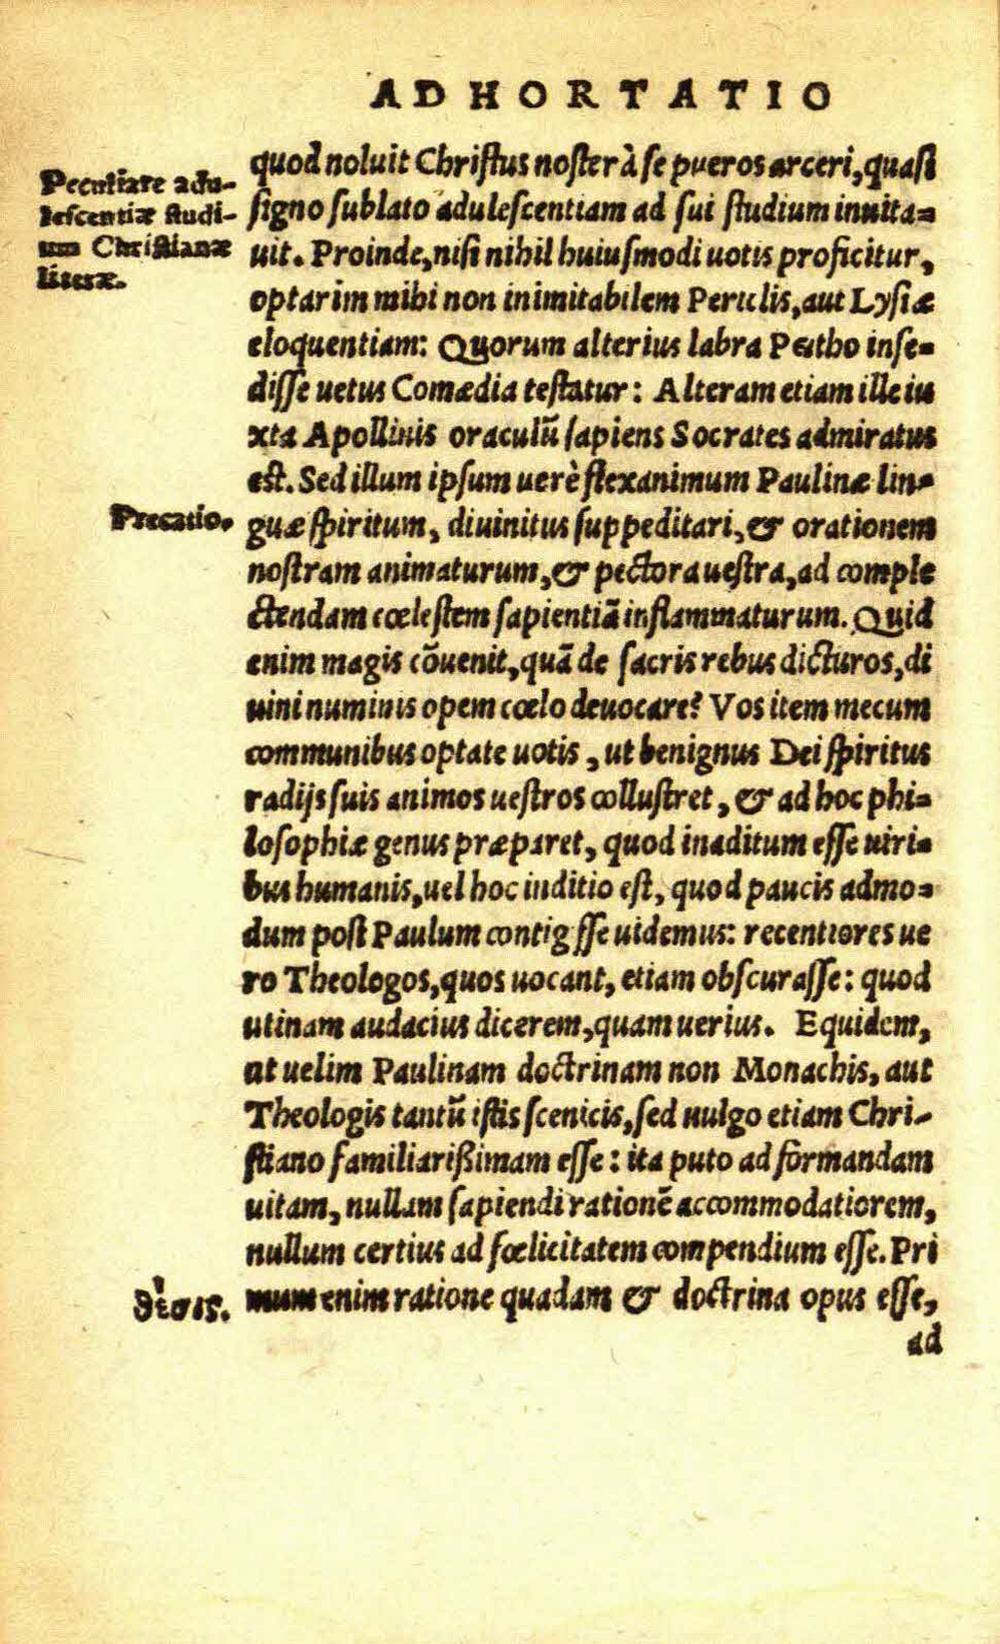 ADHORTATIO
quod noluit Christus noster à se pueros arceri, quasi
signo sublato adulescentiam ad sui studium inuita=
uit. Proinde, nisi nihil huiusmodi uotis proficitur,
optarim mihi non inimitabilem Periclis, aut Lysiæ
eloquentiam: Quorum alterius labra Peitho inse=
disse uetus Comœdia testatur: Alteram etiam ille iu
xta Apollinis oraculũ sapiens Socrates admiratus
est. Sed illum ipsum uerè flexanimum Paulinæ lin=
guæ spiritum, diuinitus suppeditari, & orationem
nostram animaturum, & pectora uestra, ad comple
ctendam cœlestem sapientiã inflammaturum. Quid
enim magis cõuenit, quã de sacris rebus dicturos, di
uini numinis opem cœlo deuocare? Vos item mecum
communibus optate uotis, ut benignus Dei spiritus
radijs suis animos uestros collustret, & ad hoc phi=
losophiæ genus præparet, quod inaditum esse uiri=
bus humanis, uel hoc inditio est, quod paucis admo=
dum post Paulum contigisse uidemus: recentiores ue
ro Theologos, quos uocant, etiam obscurasse: quod
utinam audacius dicerem, quam uerius. Equidem,
ut uelim Paulinam doctrinam non Monachis, aut
Theologis tantũ istis scenicis, sed uulgo etiam Chri-
stiano familiarißimam esse: ita puto ad formandam
uitam, nullam sapiendi rationẽ accommodatiorem,
nullum certius ad fœlicitatem compendium esse. Pri
mum enim ratione quadam & doctrina opus esse,
ad
Peculiare adu-
lescentiæ studi-
um Christianæ
literæ.
Precatio.
θέσις.